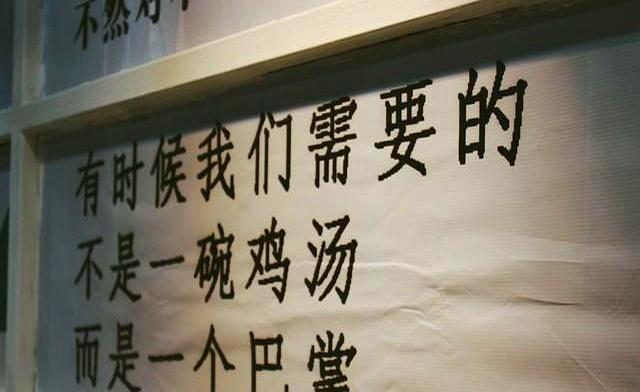 不然对不
有时候我们需要的
不是一碗鸡汤
而是一个巴掌